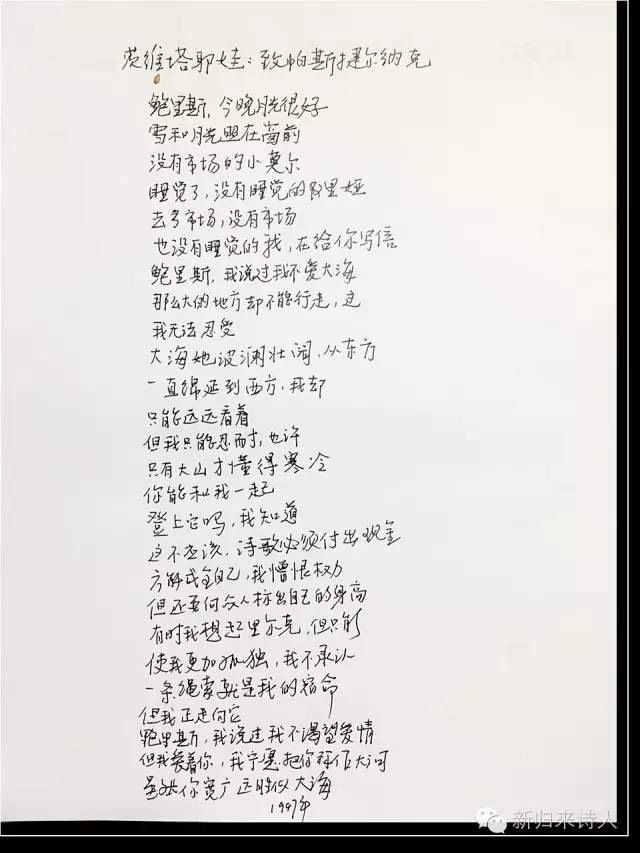 茨维塔耶娃：致帕斯捷尔纳克
鲍里斯，今晚月光很好
雪和月光照在窗前
没有市场的小莫尔
睡觉了，没有睡觉的阿里娅
去了市场，没有市场
也没有睡觉的我，在给你写信
鲍里斯，我说过我不爱大海
那么大的地方却不能行走，这
我无法忍受
大海她波澜壮阔，从东方
一直绵延到西方，我却
只能远远看着
但我只能忍耐，也许
只有大山才懂得寒冷
你能和我一起
登上它吗，我知道
这不应该，诗歌必须付出现金
方能成全自己，我憎恨权力
但还要向众人标出自己的身高
有时我想起里尔克，但只能
使我更加孤独，我不承认
一条绳索就是我的宿命
但我正走向它
鲍里斯，我说过我不渴望爱情
但我装着你，我宁愿把你称作大河
虽然你宽广远胜似大海
1997年
新归来诗人